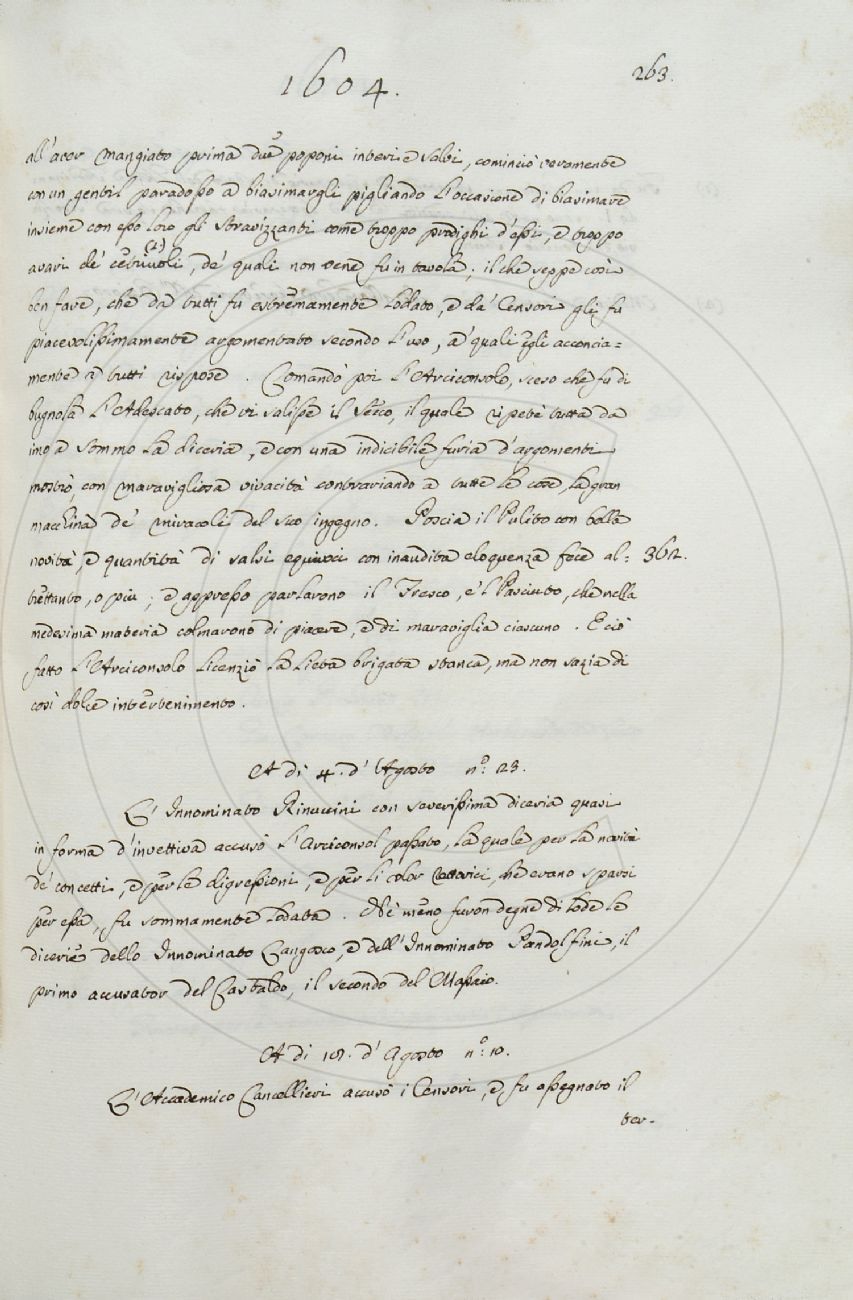 1604.
263.
all'aver mangiato prima due poponi interi e saldi, cominciò veramente
con un gentil paradosso a biasimargli pigliando l'occasione di biasimare
insieme con esso loro gli stravizzanti come troppo prodighi d'essi, e troppo
avari de' cetriuoli, de' quali non vene fu in tavola; il che seppe così
(1)
ben fare, che da tutti fu estremamente lodato, e da' Censori gli fu
piacevolissimamente argomentato secondo l'uso, a' quali egli acconcia=
mente a tutti rispose. Comandò poi l'Arciconsolo, sceso che fu di
bugnola l'Adescato, che vi salisse il Secco, il quale ripetè tutta da
imo a sommo la diceria, e con una indicibile furia d'argomenti
mostrò, con maravigliosa vivacità contrariando a tutte le cose, la gran
macchina de' miracoli del suo ingegno. Poscia il Pulito con bella
novità, e quantità di salsi equivoci con inaudita eloquenza fece al=
362.
trettanto, o più; e appresso parlarono il Fresco, e 'l Pasciuto, che nella
medesima materia colmarono di piacere, e di maraviglia ciascuno. E ciò
fatto l'Arciconsolo licenziò la lieta brigata stanca, ma non sazia di
così dolce intertenimento.
A di 4. d'Agosto n.º: 23.
L'Innominato Rinuccini con severissima diceria quasi
in forma d'invettiva accusò l'Arciconsol passato, la quale per la novità
de' concetti, e per le digressioni, e per li color rettorici, che erano sparsi
per essa, fu sommamente lodata. Nè meno furon degne di lode le
dicerie dello Innominato Cangasco, e dell'Innominato Pandolfini, il
primo accusator del Castaldo, il secondo del Massaio.
A di 18. d'Agosto n.º: 10.
L'Accademico Cancellieri accusò i Censori, e fu assegnato il
ter-